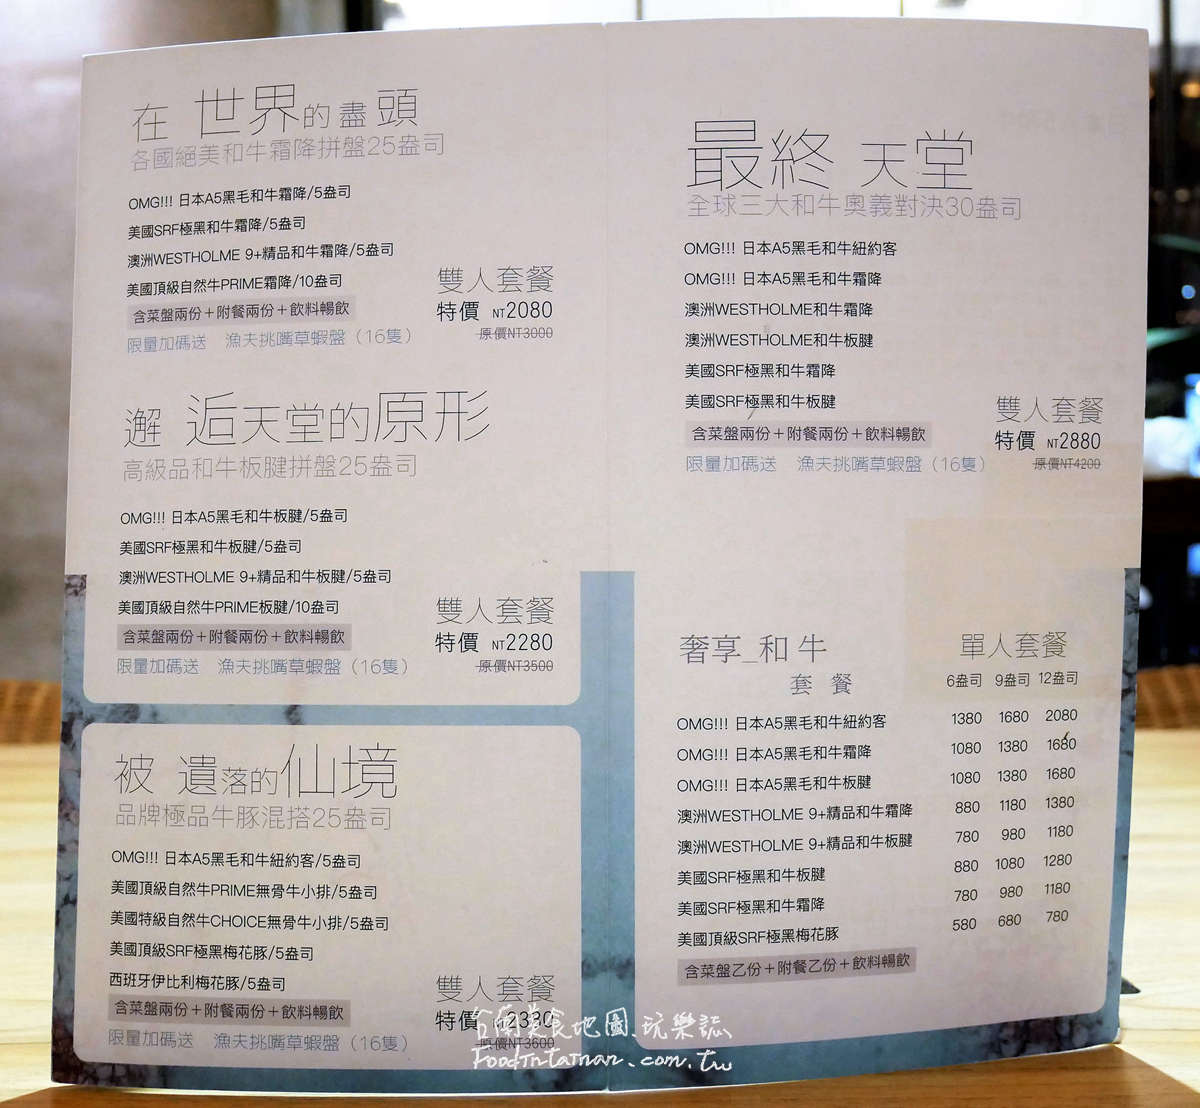 在 世界的盡頭
各國絕美和牛霜降拼盤25盎司
OMG!!! 日本A5黑毛和牛霜降/5盎司
美國SRF極黑和牛霜降/5盎司
澳洲WESTHOLME 9+精品和牛霜降/5盎司
美國頂級自然牛PRIME霜降/10盎司
含菜盤兩份+附餐兩份+飲料暢飲
限量加碼送 漁夫挑嘴草蝦盤（16隻）
雙人套餐
特價 NT2080
原價NT3000
邂 逅天堂的原形
高級品和牛板腱拼盤25盎司
OMG!!! 日本A5黑毛和牛板腱/5盎司
美國SRF極黑和牛板腱/5盎司
澳洲WESTHOLME 9+精品和牛板腱/5盎司
美國頂級自然牛PRIME板腱/10盎司
含菜盤兩份+附餐兩份+飲料暢飲
限量加碼送 漁夫挑嘴草蝦盤（16隻）
雙人套餐
特價 NT2280
原價NT3500
被 遺落的仙境
品牌極品牛豚混搭25盎司
OMG!!! 日本A5黑毛和牛紐約客/5盎司
美國頂級自然牛PRIME無骨牛小排/5盎司
美國特級自然牛CHOICE無骨牛小排/5盎司
美國頂級SRF極黑梅花豚/5盎司
西班牙伊比利梅花豚/5盎司
含菜盤兩份+附餐兩份+飲料暢飲
限量加碼送 漁夫挑嘴草蝦盤（16隻）
雙人套餐
特價 NT2330
原價NT3600
最終 天堂
全球三大和牛奧義對決30盎司
OMG!!! 日本A5黑毛和牛紐約客
OMG!!! 日本A5黑毛和牛霜降
澳洲WESTHOLME和牛霜降
澳洲WESTHOLME和牛板腱
美國SRF極黑和牛霜降
美國SRF極黑和牛板腱
含菜盤兩份+附餐兩份+飲料暢飲
限量加碼送 漁夫挑嘴草蝦盤（16隻）
雙人套餐
特價 NT2880
原價NT4200
奢享_和牛
套 餐
單人套餐
6盎司 9盎司 12盎司
OMG!!! 日本A5黑毛和牛紐約客 1380 1680 2080
OMG!!! 日本A5黑毛和牛霜降 1080 1380 1680
OMG!!! 日本A5黑毛和牛板腱 1080 1380 1680
澳洲WESTHOLME 9+精品和牛霜降 880 1180 1380
澳洲WESTHOLME 9+精品和牛板腱 780 980 1180
美國SRF極黑和牛板腱 880 1080 1280
美國SRF極黑和牛霜降 780 980 1180
美國頂級SRF極黑梅花豚 580 680 780
含菜盤乙份+附餐乙份+飲料暢飲
台南美食地圖 玩樂誌
FoodInTainan.com.tw